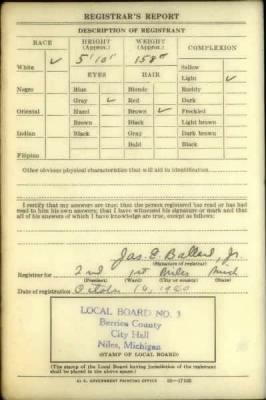 REGISTRAR'S REPORT
DESCRIPTION OF REGISTRANT
RACE HEIGHT (Approx.) WEIGHT (Approx.) COMPLEXION
White ✓ 5' 10" 158 Sallow
EYES HAIR Light ✓
Negro Blue Blonde Ruddy
Gray ✓ Red Dark
Oriental Hazel Brown ✓ Freckled
Brown Black Light brown
Indian Black Gray Dark brown
Bald Black
Filipino
Other obvious physical characteristics that will aid in identification
I certify that my answers are true; that the person registered has read or has had
read to him his own answers; that I have witnessed his signature or mark and that
all of his answers of which I have knowledge are true, except as follows:
Jas. E. Ballard, Jr.
(Signature of registrar)
Registrar for 2nd 1st Niles Mich
(Precinct) (Ward) (City or county) (State)
Date of registration October 16, 1940
LOCAL BOARD NO. 3
Berrien County
City Hall
Niles, Michigan
(STAMP OF LOCAL BOARD)
(The stamp of the Local Board having jurisdiction of the registrant
shall be placed in the above space.)
U. S. GOVERNMENT PRINTING OFFICE 16—17105